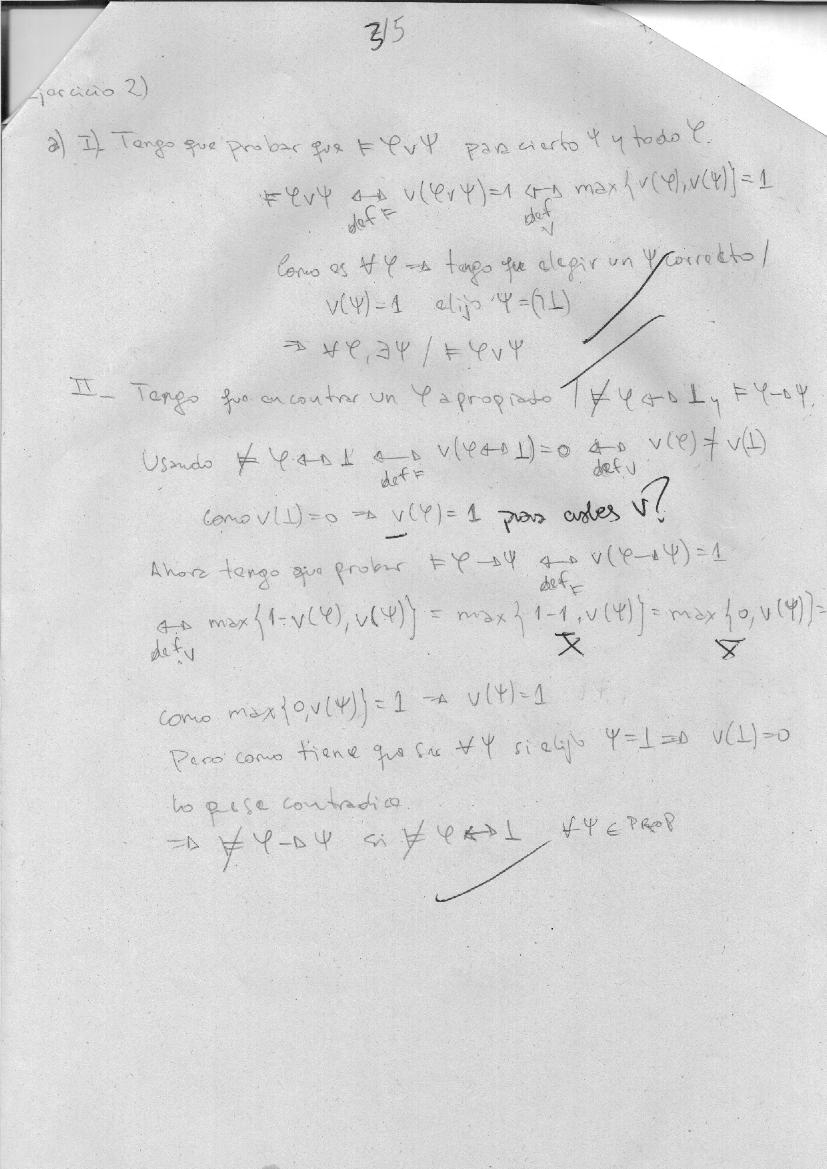 3/5
Ejercicio 2)
a) I) Tengo que probar que ⊨ φ∨ψ para cierto ψ y todo φ.
⊨ φ∨ψ ↔ v(φ∨ψ)=1 ↔ max{v(φ),v(ψ)}=1
def ⊨ def v
Como es ∀φ ⇒ tengo que elegir un ψ correcto /
v(ψ)=1 elijo ψ=(¬⊥)
⇒ ∀φ, ∃ψ / ⊨ φ∨ψ
II- Tengo que encontrar un φ apropiado / ⊭ φ↔⊥ y ⊨ φ→ψ.
Usando ⊭ φ↔⊥ ↔ v(φ↔⊥)=0 ↔ v(φ)≠v(⊥)
def ⊨ def v
como v(⊥)=0 ⇒ v(φ)=1 para cuáles v?
Ahora tengo que probar ⊨ φ→ψ ↔ v(φ→ψ)=1
def ⊨
↔ max{1-v(φ),v(ψ)} = max{1-1,v(ψ)} = max{0,v(ψ)}=
def v X X
como max{0,v(ψ)}=1 ⇒ v(ψ)=1
Pero como tiene que ser ∀ψ si elijo ψ=⊥ ⇒ v(⊥)=0
lo que se contradice.
⇒ ⊭ φ→ψ si ⊭ φ↔⊥ ∀ψ ∈ PROP